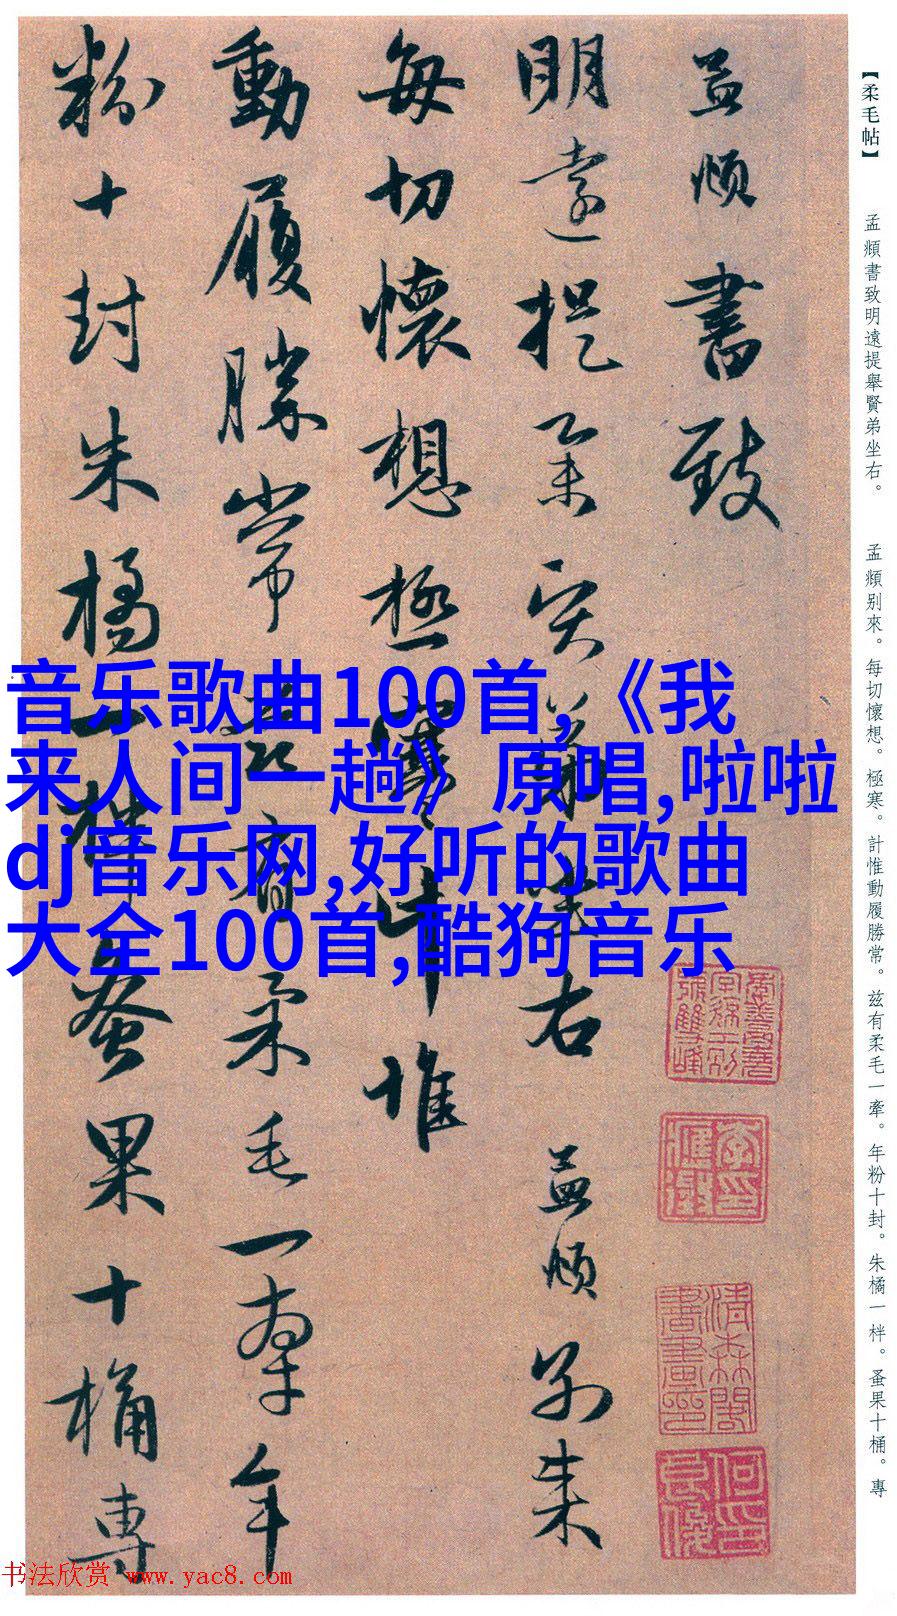 【柔毛帖】
孟頫書致明遠提舉賢弟坐右。
孟頫別來。每切懷想。極寒。計惟動履勝常。兹有柔毛一牽。年粉十封。朱橘一柈。蚤果十桶。專
孟頫書致
明遠提舉賢弟坐右 孟頫別來
每切懷想極寒計惟
動履勝常兹有柔毛一牽年
粉十封朱橘一柈蚤果十桶專
音乐歌曲100首,《我
来人间一趟》原唱,啦啦
dj音乐网,好听的歌曲
大全100首,酷狗音乐
书法欣赏 www.yac8.com